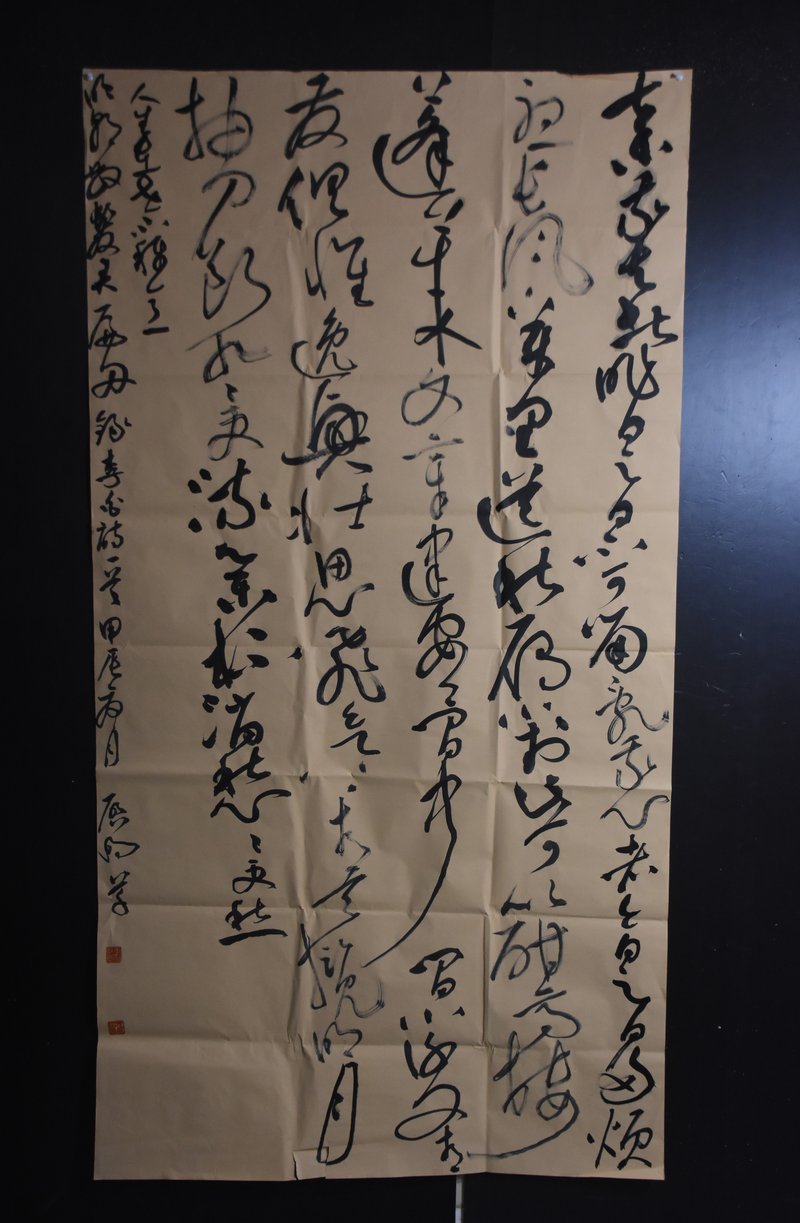 棄我去者昨日之日不可留亂我心者今日之日多煩
憂長風萬里送秋雁對此可以酣高樓
蓬萊文章建安骨中間小謝又清
發俱懷逸興壯思飛欲上青天攬明月
抽刀斷水水更流舉杯消愁愁更愁
人生在世不稱意
明朝散髮弄扁舟錄李白詩一首甲辰月